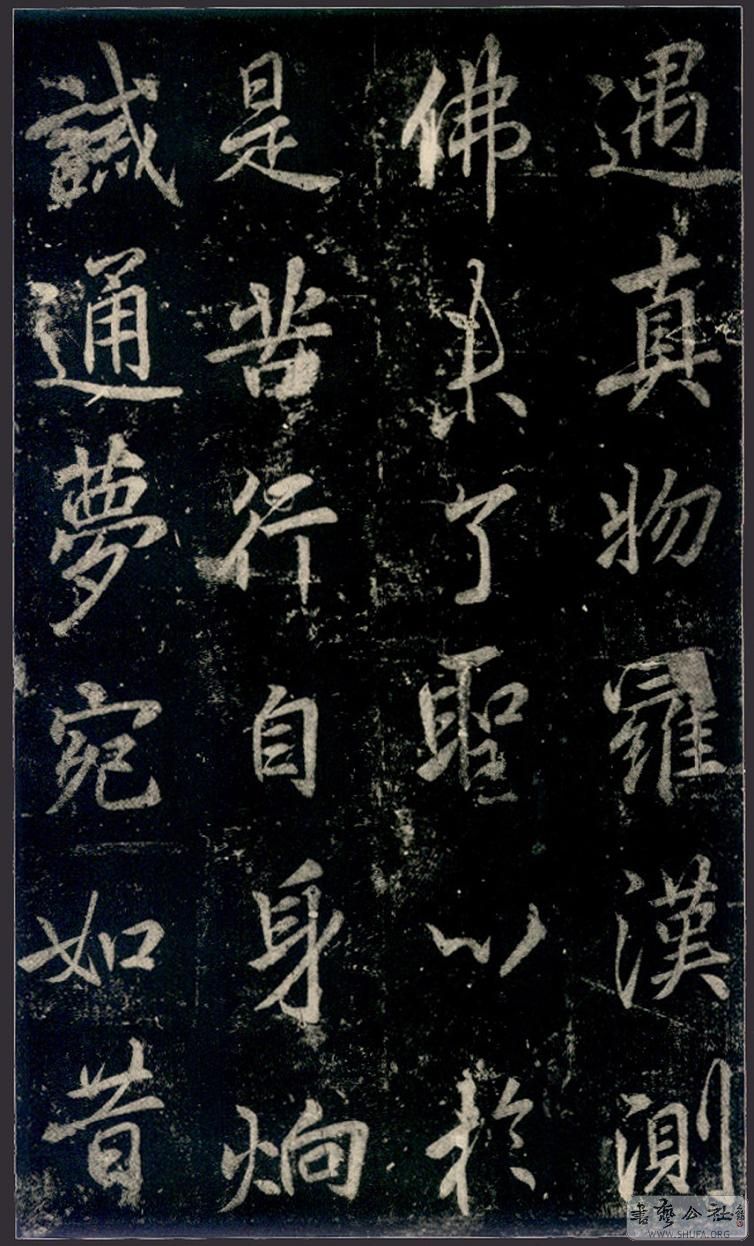 遇真物羅漢測
佛未了聖以於
是苦行自身炯
誠通夢宛如昔
書藝公社
WWW.SHUFA.ORG